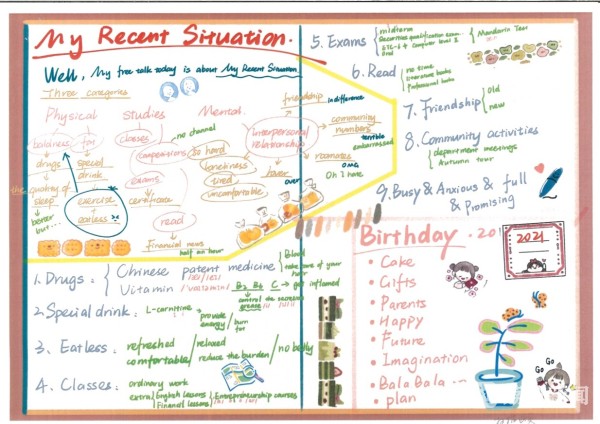 My Recent Situation.
Well, My free talk today is about My Recent Situation
Three categories
Physical
Studies
Mental
baldness
fat
drugs
special drink
the quality of sleep
better but...
exercise
eatless
classes
no channel
competitions
so hard
exams
certificate
read
financial news
half an hour
friendship
indifference
interpersonal relationship
community members
terrible
embarrassed
roomates
OMG
Oh I hate
loneliness
tired
uncomfortable
lover
over
1. Drugs:
Chinese patent medicine
blood
take care of your
Vitamin
B2 B6 C → get inflamed
control the secretion
grease
2. Special drink:
L-carnitine
provide energy / burn fat
3. Eatless:
refreshed / relaxed
comfortable / reduce the burden / no belly
4. Classes:
ordinary work
extra
English lessons
Financial lessons
Entrepreneurship courses
5. Exams
midterm
Securities qualification exam
CTC-6 + Computer level 2
oral
Mandarin Test
6. Read
no time
literature books
Professional books
7. Friendship
old
new
8. Community activities
department meetings
Autumn tour
9. Busy & Anxious & full
& Promising
Birthday
2021
• Cake
• Gifts
• Parents
• Happy
• Future
• Imagination
• Bala Bala ...
• plan
Go Go